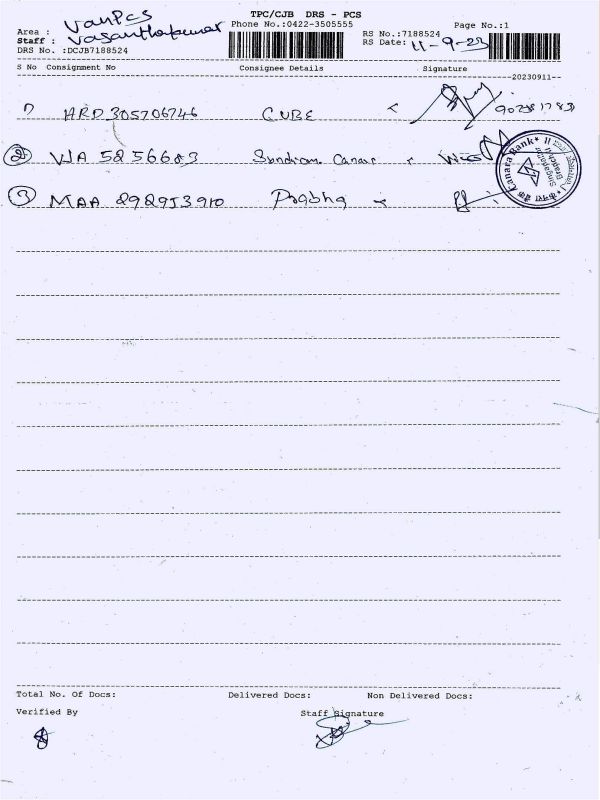 TPC/CJB DRS - PCS
Area : VanPcs
Phone No.:0422-3505555
Page No.:1
Staff : Vasanthakumar
RS No.:7188524
DRS No. :DCJB7188524
RS Date: 11-9-23
S No Consignment No Consignee Details Signature
20230911
1) HRD 305706746 CUBE
② VJA 5256683 Sundram Canar
③ MAA 292953910 Prabha
Canara Bank
Singanallur
Branch
Total No. Of Docs: Delivered Docs: Non Delivered Docs:
Verified By Staff Signature